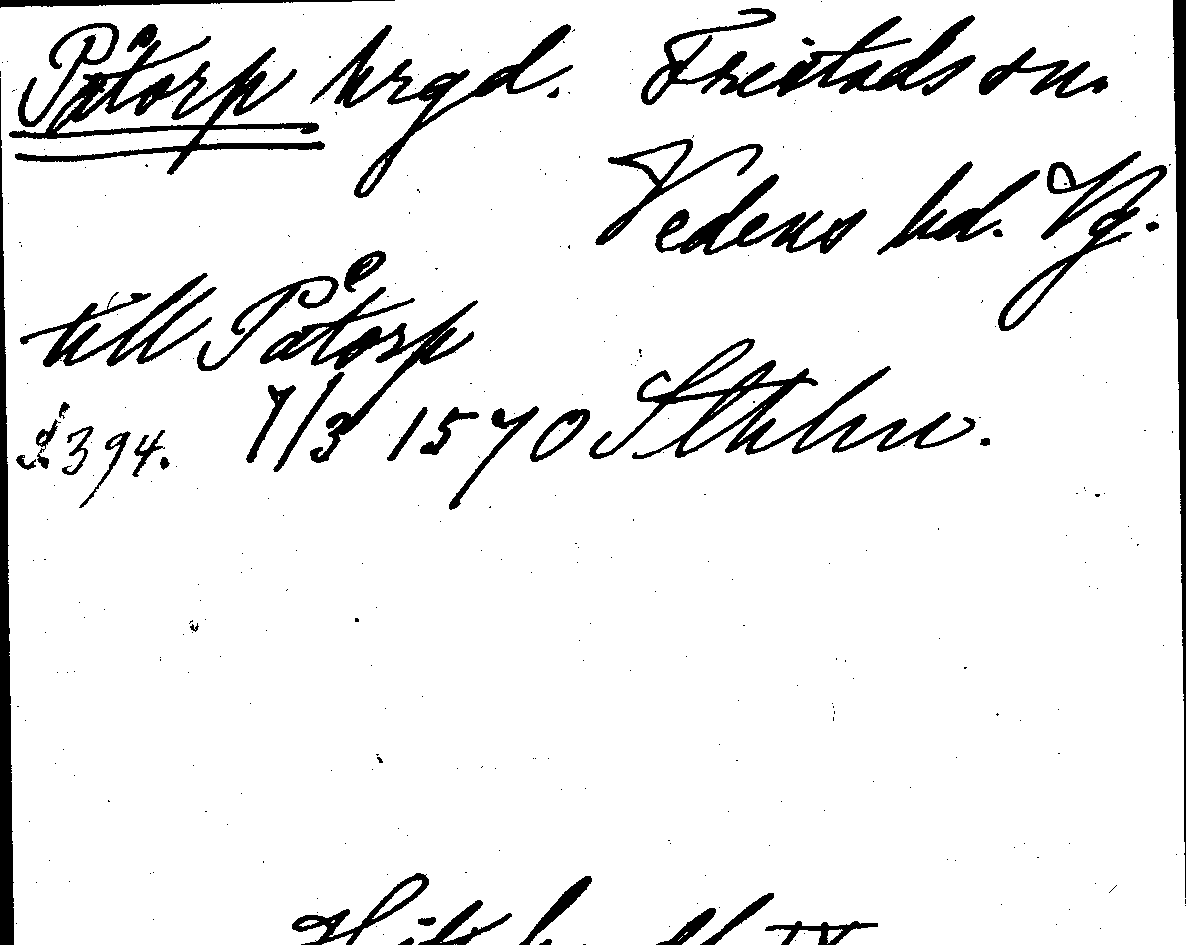 Påtorp hrgd. Fristads sn.
Vedens hd. Vg.
till Påtorp
£394. 7/3 1570 Sthlm.